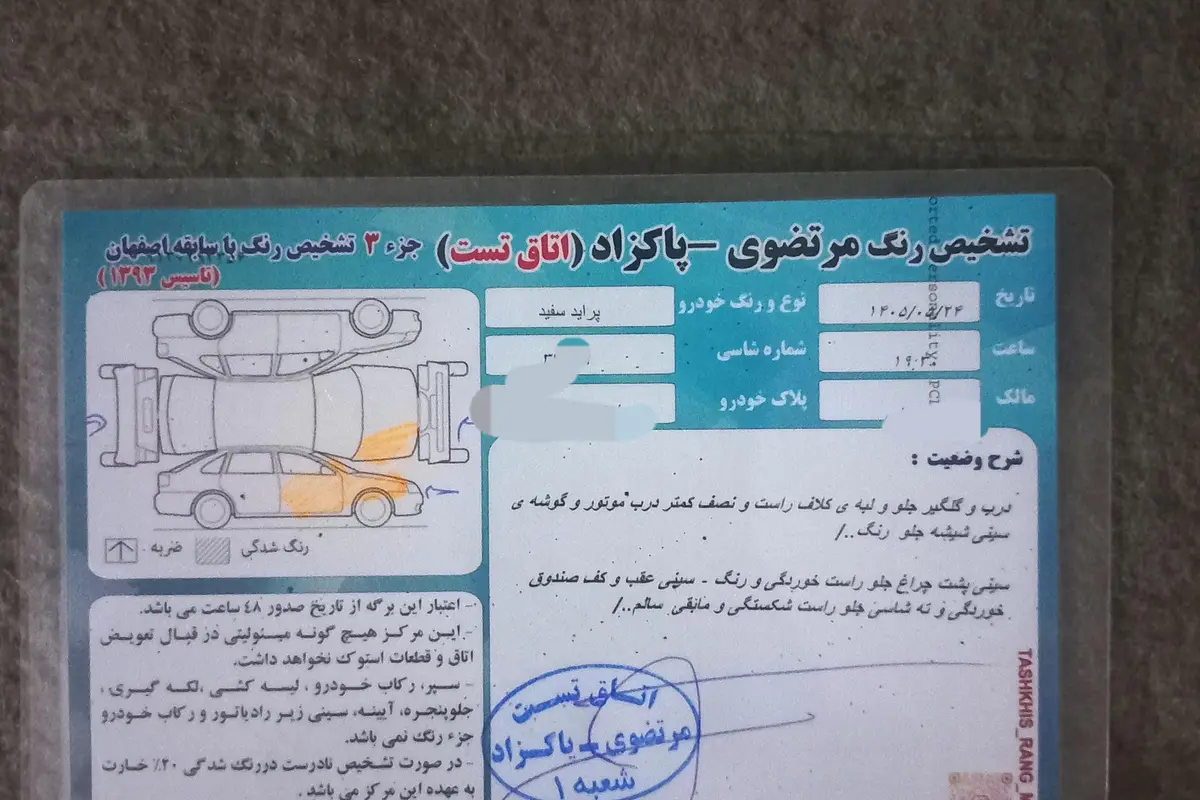 تشخیص رنگ مرتضوی - پاکزاد (اتاق تست) جزء ۳ تشخیص رنگ با سابقه اصفهان
(تاسیس ۱۳۹۳)
تاریخ ۱۴۰۵/۰۵/۲۴
نوع و رنگ خودرو پراید سفید
ساعت
شماره شاسی
مالک
پلاک خودرو
شرح وضعیت :
درب و گلگیر جلو و لبه ی کلاف راست و نصف کمتر درب موتور و گوشه ی
سینی شیشه جلو رنگ../
سینی پشت چراغ جلو راست خوردگی و رنگ - سینی عقب و کف صندوق
خوردگی و ته شاسی جلو راست شکستگی و مابقی سالم../
رنگ شدگی
ضربه
- اعتبار این برگه از تاریخ صدور ۴۸ ساعت می باشد.
- این مرکز هیچ گونه مسئولیتی در قبال تعویض
اتاق و قطعات استوک نخواهد داشت.
- سپر، رکاب خودرو ، لیسه کشی ،لکه گیری ،
جلوپنجره، آیینه، سینی زیر رادیاتور و رکاب خودرو
جزء رنگ نمی باشد.
- در صورت تشخیص نادرست دررنگ شدگی ۲۰٪ خسارت
به عهده این مرکز می باشد .
اتاق تست
مرتضوی - پاکزاد
شعبه ۱
TASHKHIS_RANG